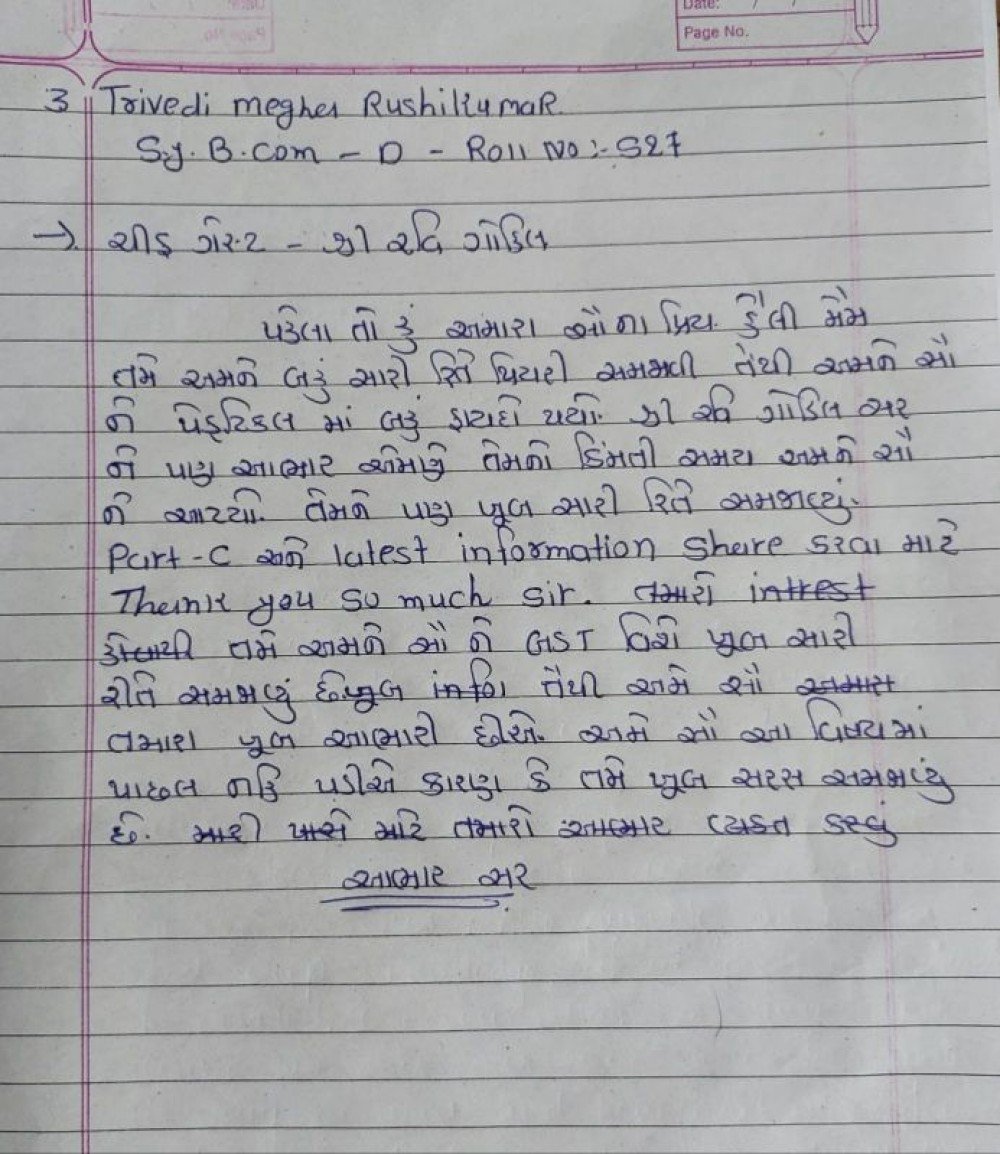 Date: / /
Page No.
3 Trivedi megha Rushilkumar.
S.y. B.com - D - Roll No :- 527
→ ચીફ ગેસ્ટ - શ્રી રવિ ગોહિલ
પહેલા તો હું અમારા સૌના પ્રિય. હેલી મેમ
તમે અમને બહુ સારી રિતે થિયરી સમજાવી તેથી અમને સૌ
ને પ્રેક્ટિકલ માં બહુ ફાયદો થયો. શ્રી રવિ ગોહિલ સર
નો પણ આભાર એમણે તેમનો કિંમતી સમય અમને સૌ
ને આપ્યો. તેમને પણ ખૂબ સારી રિતે સમજાવ્યું.
Part-C અને latest information share કરવા માટે
Thank you so much sir. તમારો intrest
તમે અમને સૌ ને GST વિશે ખૂબ સારી
રીતે સમજાવ્યું છે. ખૂબ info તેથી અમે સૌ અમારા
તમારા ખૂબ આભારી છીએ. અમે સૌ આ વિષયમાં
પાછળ નહિ પડીએ કારણ કે તમે ખૂબ સરસ સમજાવ્યું
છે. મારી પાસે માટે તમારો આભાર વ્યક્ત કરવું
આભાર સર